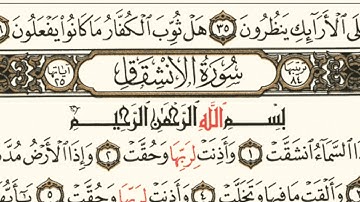 ٱلْأَرَآئِكِ يَنظُرُونَ ٣٥ هَلْ ثُوِّبَ ٱلْكُفَّارُ مَا كَانُوا۟ يَفْعَلُونَ
ترتيبها ٨٤ سُورَةُ الِانْشِقَاقِ آياتها ٢٥
بِسْمِ ٱللَّهِ ٱلرَّحْمَٰنِ ٱلرَّحِيمِ
ٱلسَّمَآءُ ٱنشَقَّتْ ١ وَأَذِنَتْ لِرَبِّهَا وَحُقَّتْ ٢ وَإِذَا ٱلْأَرْضُ مُدَّ
وَأَلْقَتْ مَا فِيهَا وَتَخَلَّتْ ٤ وَأَذِنَتْ لِرَبِّهَا وَحُقَّتْ ٥